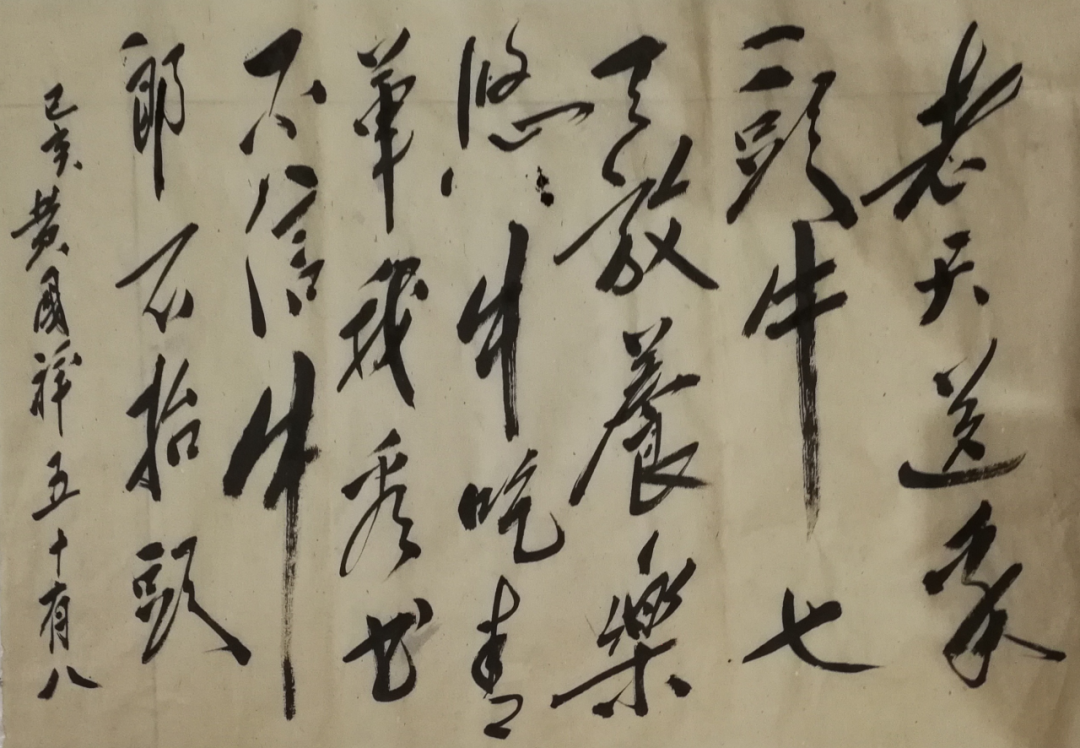 老天送
一頭牛七
天放養樂
悠悠牛吃青
草我看书
不信牛
郎不抬頭
己亥黄國祥五十有八